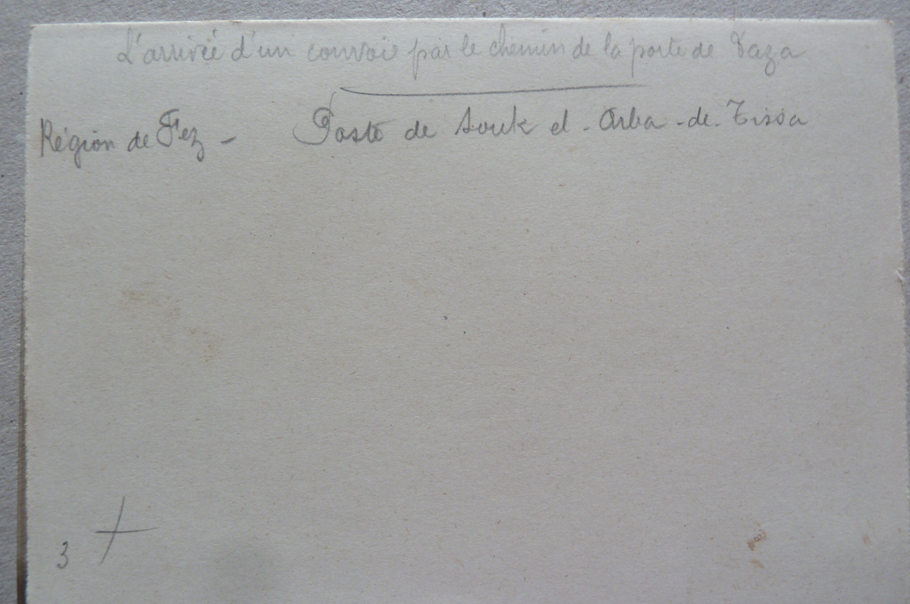 L'arrivée d'un convoie par le chemin de la porte de Taza
Région de Fez - Poste de Souk el - Arba - de - Tissa
3 +